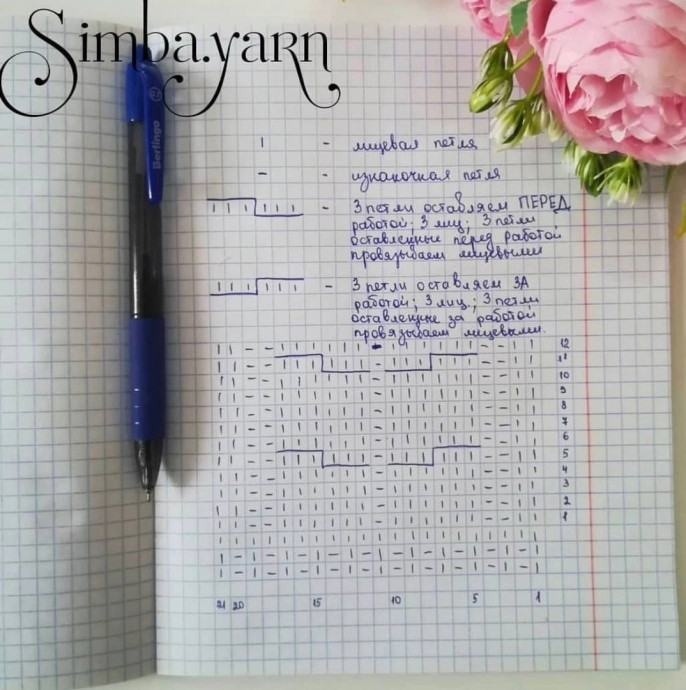 Simba.yarn
Berlingo
| - лицевая петля
– - изнаночная петля
- 3 петли оставляем ПЕРЕД
работой; 3 лиц; 3 петли
оставленные перед работой
провязываем лицевыми
- 3 петли оставляем ЗА
работой; 3 лиц.; 3 петли
оставленные за работой
провязываем лицевыми.
12
11
10
9
8
7
6
5
4
3
2
1
21 20 15 10 5 1